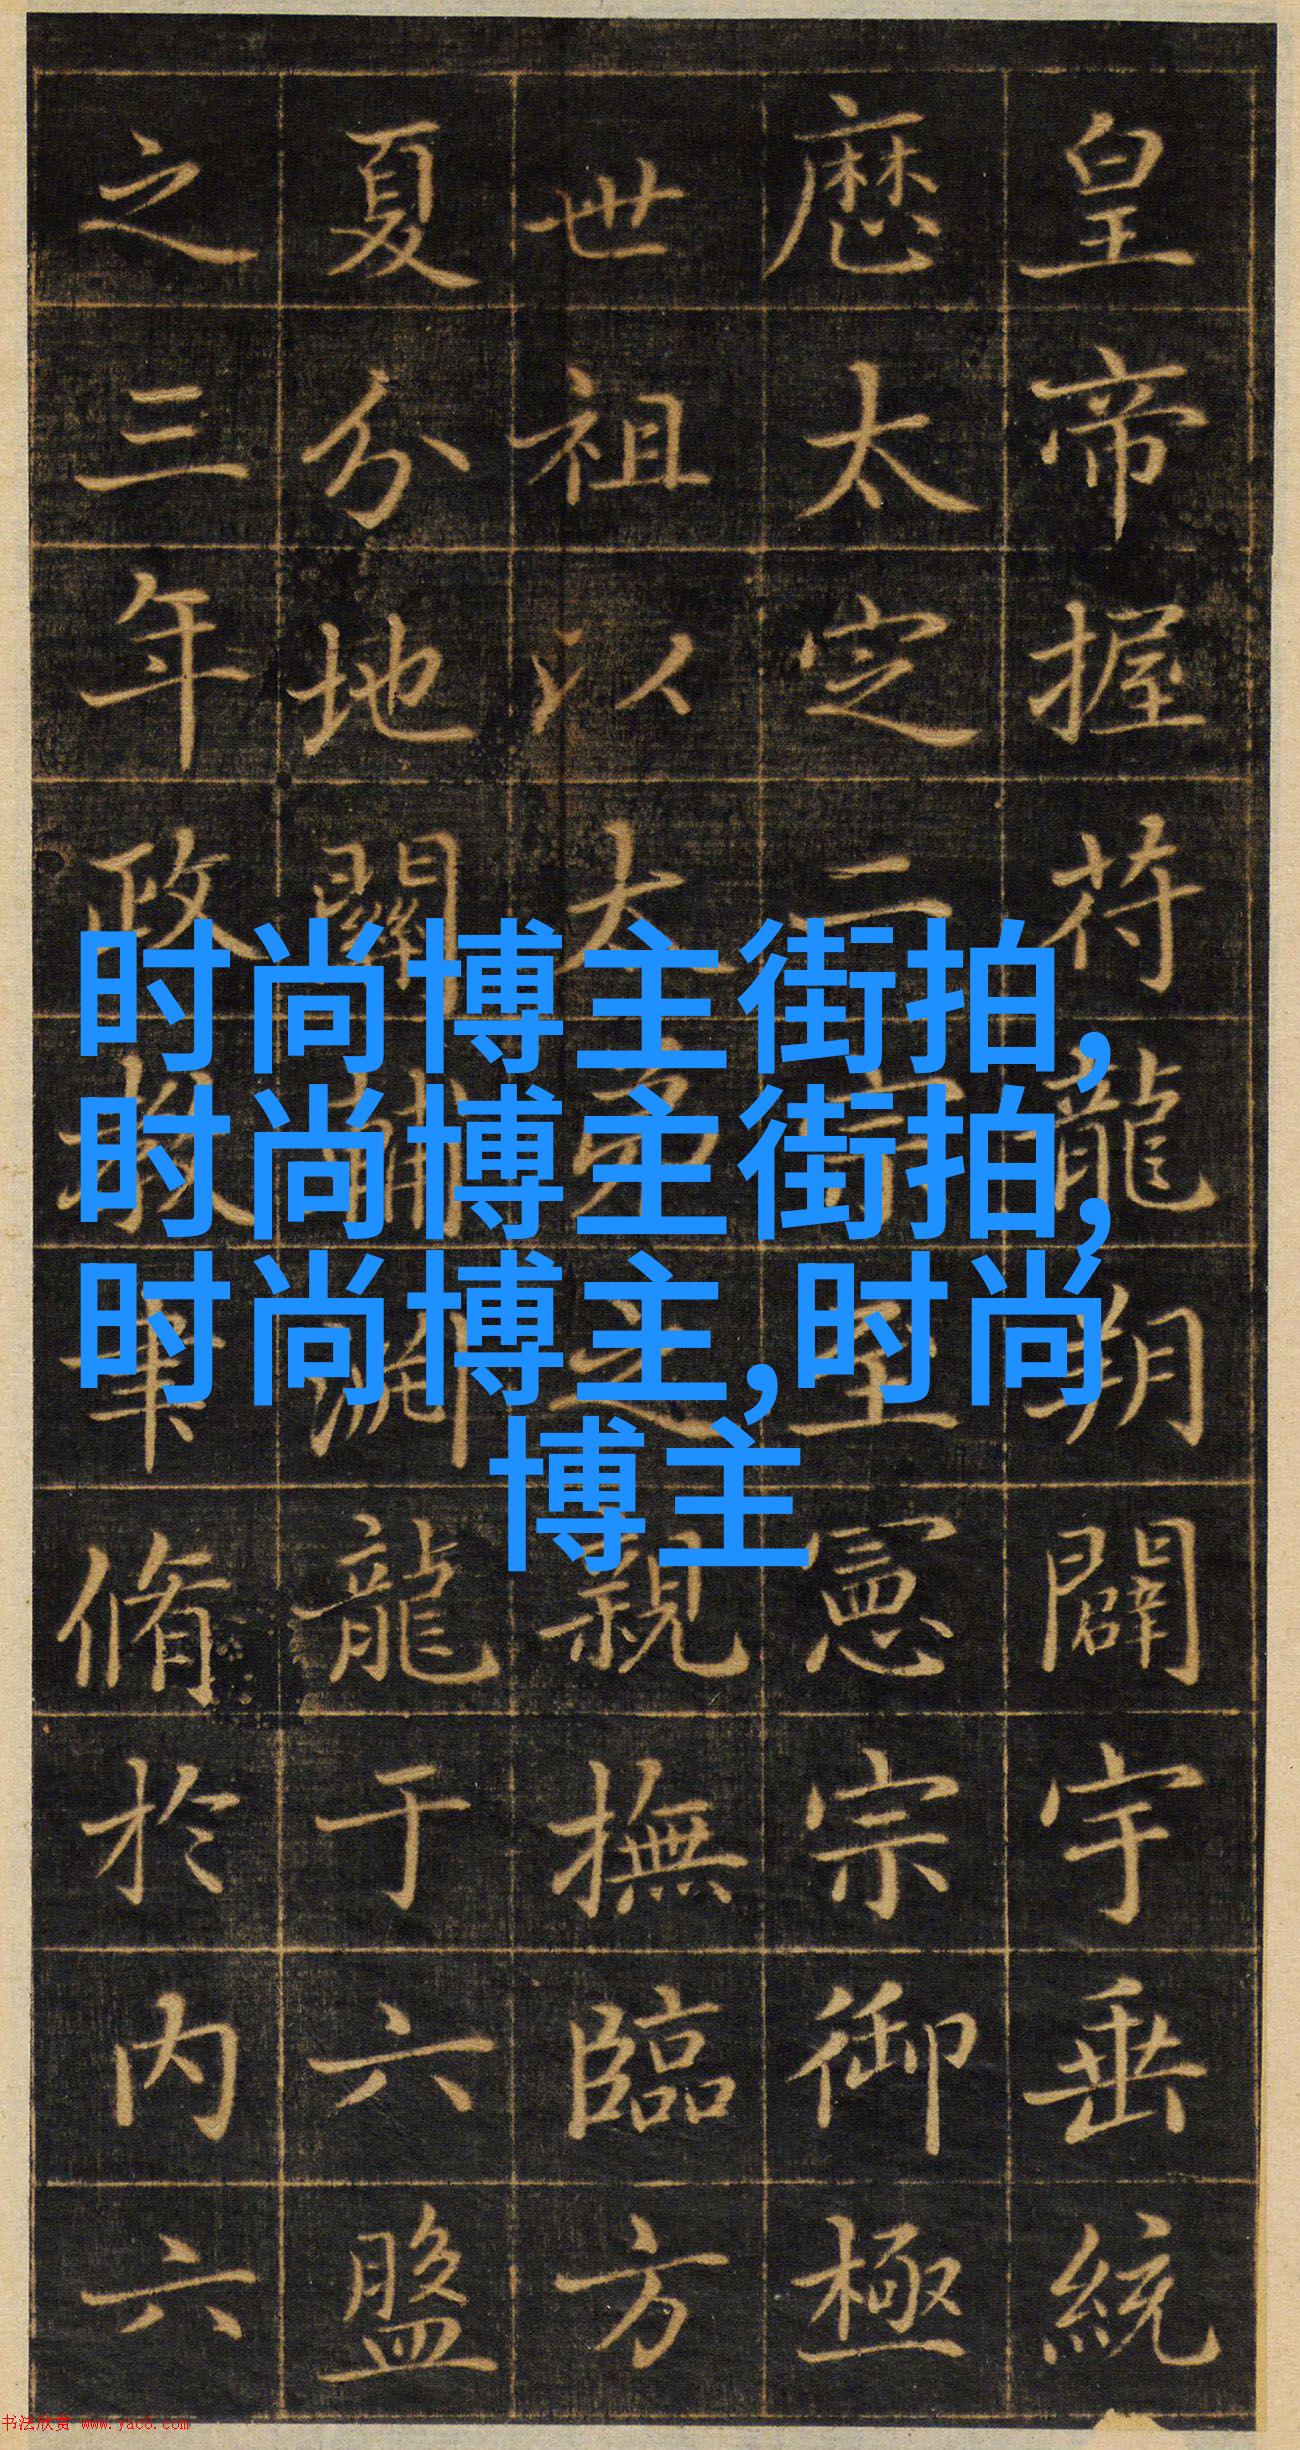 皇帝握符龍朔闢宇垂統
歷太定二宗至憲宗御極
世祖以太弟之親撫臨方
夏分地關輔淵龍于六盤
之三年政教脩於内六
时尚博主街拍,
时尚博主街拍,
时尚博主,时尚
博主
书法欣赏 www.yac8.com